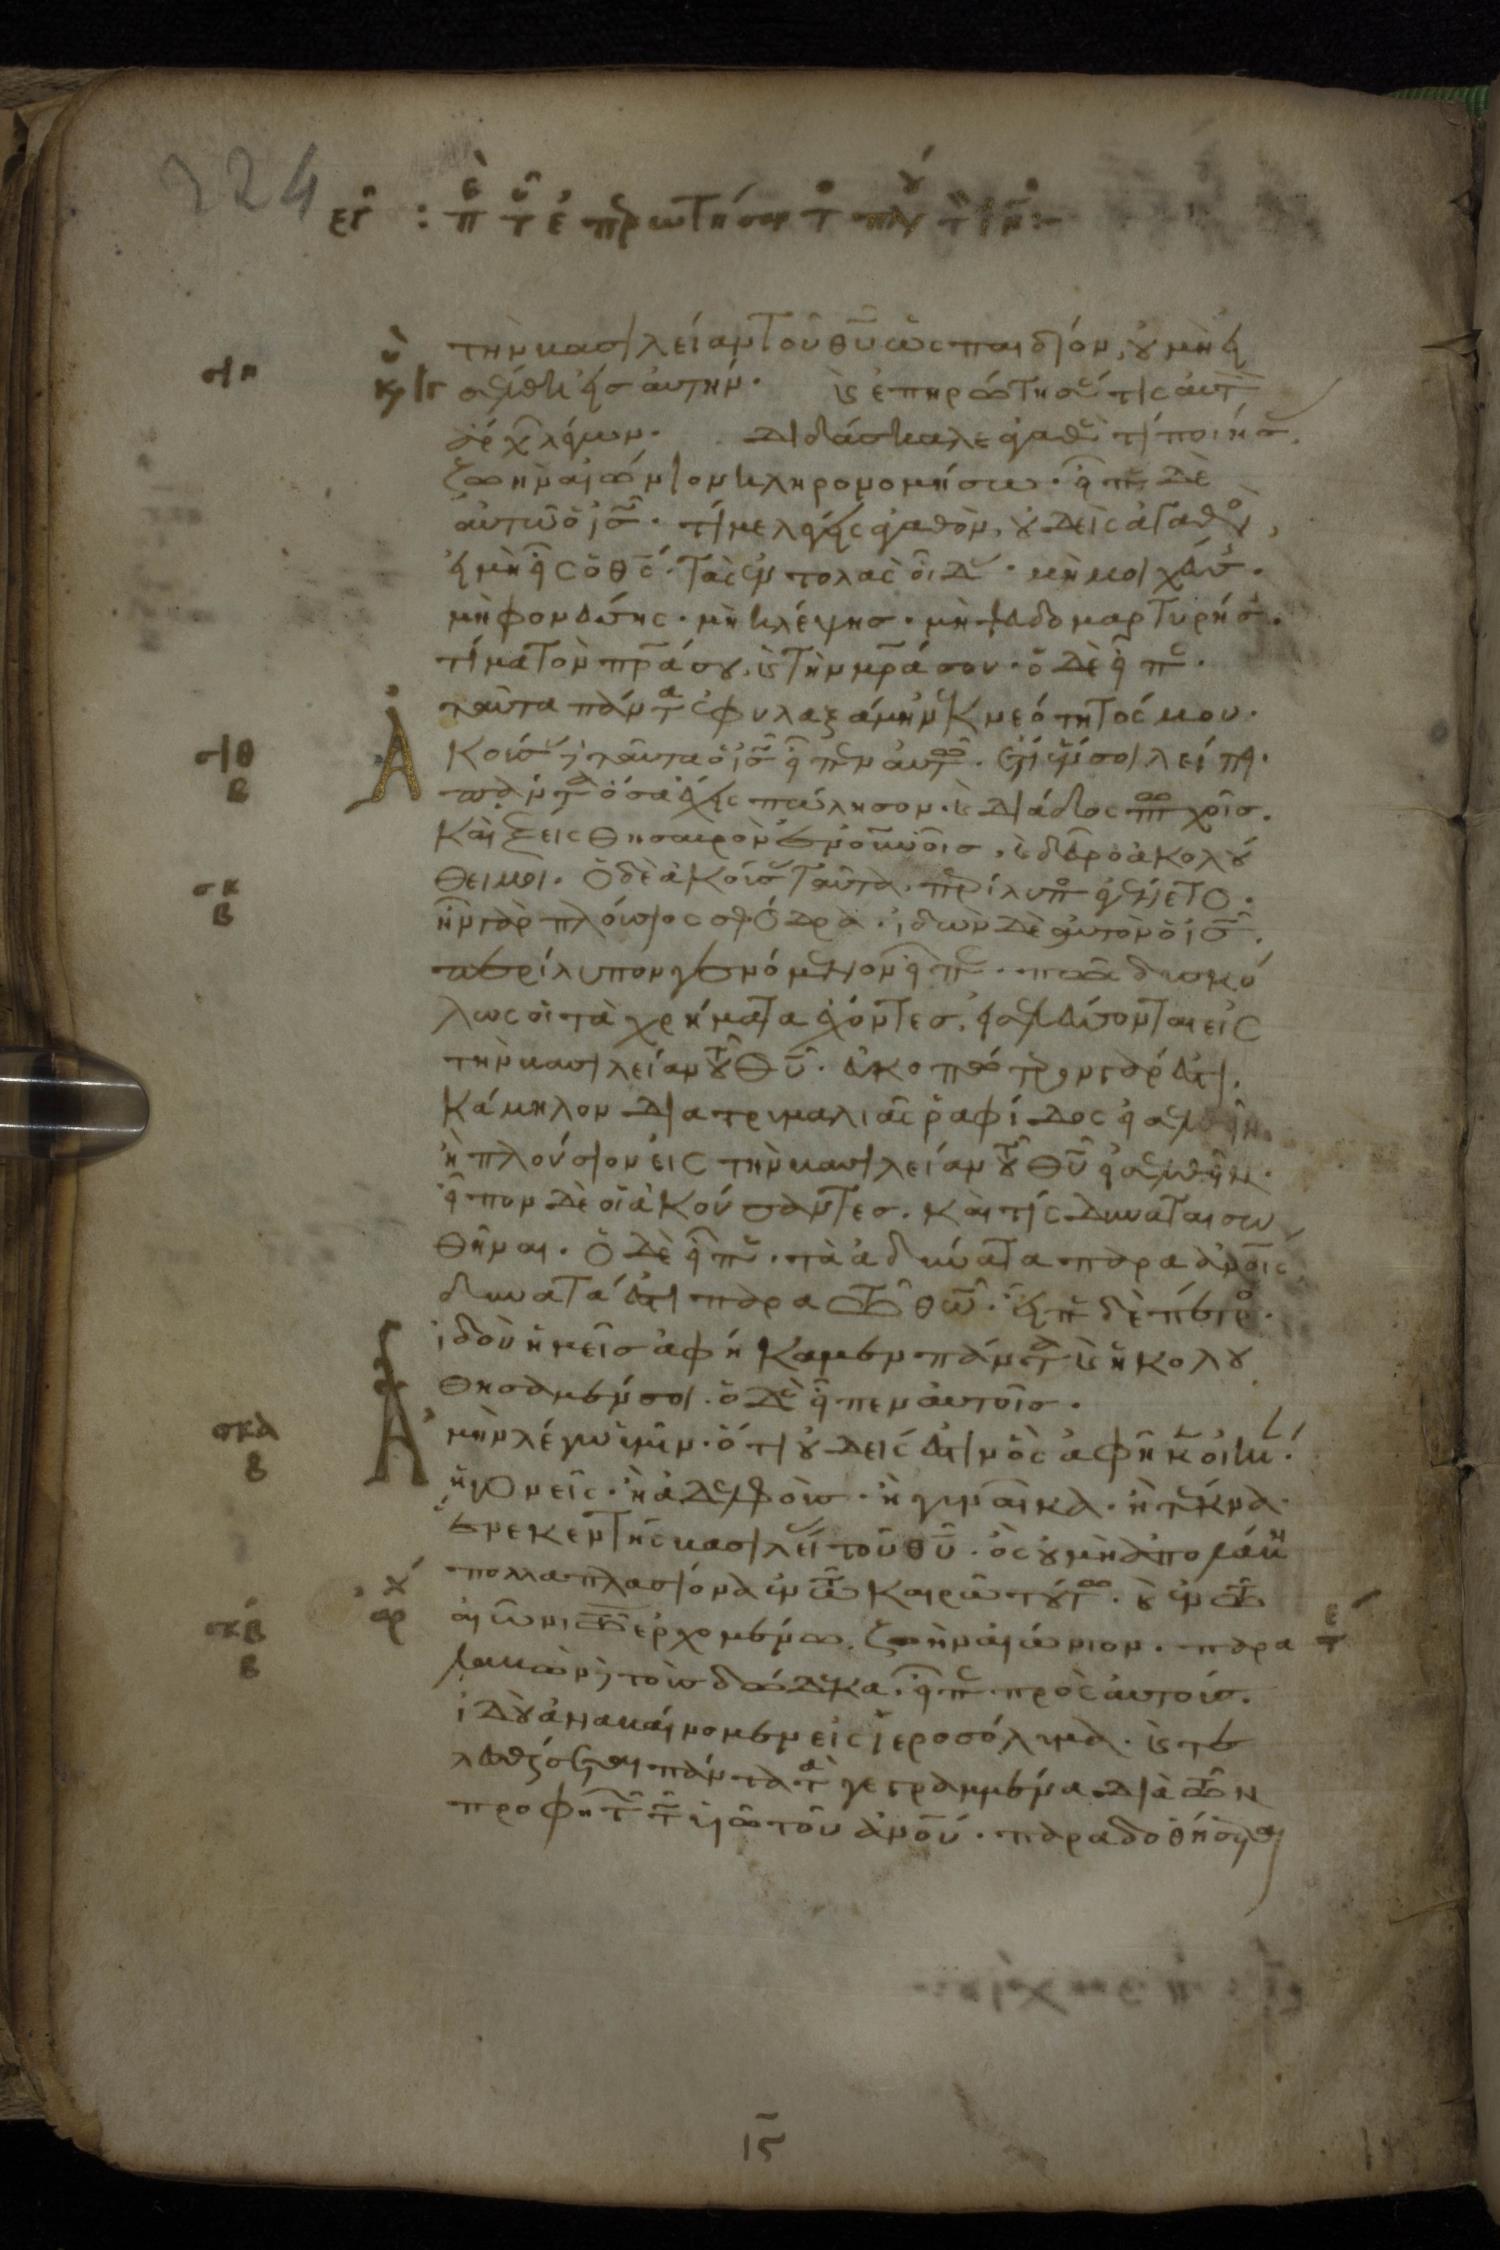 224
ξγ : πε του επερωτησαντ τ πλου τ ιν :-
τὴν βασιλείαν τοῦ θυ ὡς παιδίον, οὐ μὴ εἰ
σιη
σέλθη εἰς αὐτήν. καὶ ἐπηρώτησέ τις αὐτ
ἄρχ λέγων. Διδάσκαλε ἀγαθὲ τί ποιήσ
ζωὴν αἰώνιον κληρονομήσω. εἶπε δὲ
αὐτῶ ὁ ισ. τί με λέγεις ἀγαθὸν, οὐδεὶς ἀγαθὸ
εἰ μὴ εἷς ὁ θς. τὰς ἐντολὰς οἶδας. μὴ μοιχεύσ.
μὴ φονεύσης. μὴ κλέψης. μὴ ψευδομαρτυρήσ.
τίμα τὸν πρα σου, καὶ τὴν μρα σου. ὁ δὲ εἶπε.
ταῦτα πάντα ἐφυλαξάμην ἐκ νεότητός μου.
σιθ
β
Ἀ
κούσας ταῦτα ὁ ισ εἶπεν αὐτῶ. ἔτι ἕν σοι λείπει.
πάντα ὅσα ἔχεις πώλησον. καὶ διάδος πτωχοῖσ.
καὶ ἕξεις θησαυρὸν ἐν οὐνοῖσ, καὶ δεῦρο ἀκολού
σκ
β
θει μοι. ὁ δὲ ἀκούσας ταῦτα, περίλυπο ἐγένετο.
ἦν γὰρ πλούσιος σφόδρα. ἰδὼν δὲ αὐτὸν ὁ ισ.
περίλυπον γενόμενον εἶπε. πῶς δυσκό
λως οἱ τὰ χρήματα ἔχοντεσ, εἰσελεύσονται εἰς
τὴν βασιλείαν τοῦ θυ. εὐκοπώτερον γάρ ἐστι.
κάμηλον δια τρυμαλιᾶς ῥαφίδος εἰσελθεῖν.
ἢ πλούσιον εἰς τὴν βασιλείαν τοῦ θυ εἰσελθεῖν.
εἶπον δὲ οἱ ἀκούσαντεσ. καὶ τίς δύναται σω
θῆναι. ὁ δὲ εἶπε. τὰ ἀδύνατα παρα ἀνοις
δυνατά ἐστι παρα τῶ θω. εἶπε δὲ πέτρο.
ἰδοὺ ἡμεῖσ ἀφήκαμεν πάντα καὶ ἠκολου
θήσαμέν σοι. ὁ δὲ εἶπεν αὐτοῖσ.
σκα
β
Ἀ
μὴν λέγω ὑμῖν. ὅτι οὐδείς ἐστιν ὃς ἀφῆκεν οἰκί.
ἢ γονεῖς. ἢ ἀδελφοὺσ. ἢ γυναῖκα. ἢ τέκνα
ἕνεκεν τῆς βασιλεί τοῦ θυ. ὃς οὐ μὴ ἀπολάβη
πολλαπλασίονα ἐν τῶ καιρῶ τούτω. καὶ ἐν τῶ
σκβ
β
αἰῶνι τῶ ἐρχομένω, ζωὴν αἰώνιον. παρα
λαβὼν τοὺσ δώδεκα, εἶπε πρὸς αὐτούσ.
ἰδοὺ ἀναβαίνομεν εἰς ἱεροσόλυμα. καὶ τε
λεσθήσεται πάντα τὰ γεγραμμένα διὰ τῶν
προφητ τ υἱῶ τοῦ ἀνου. παραδοθήσεται
ις